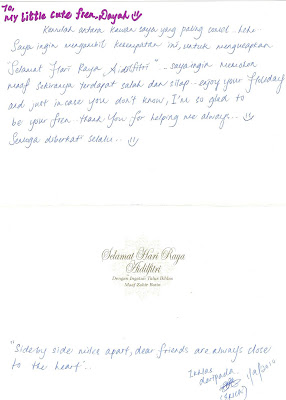 To,
My little cute fren, Dayah
Kamulah antara kawan saya yang paling comel.. hehe..
Saya ingin mengambil kesempatan ini, untuk mengucapkan
"Selamat Hari Raya Aidilfitri" - saya ingin memohon
maaf sekiranya terdapat salah dan silap.. enjoy your holiday
and just in case you don't know, I'm so glad to
be your fren.. thank you for helping me always...
Semoga diberkati selalu...
Selamat Hari Raya
Aidilfitri
Dengan Ingatan Tulus Ikhlas
Maaf Zahir Batin
"Side by side miles apart, dear friends are always close
to the heart"..
Ikhlas
daripada